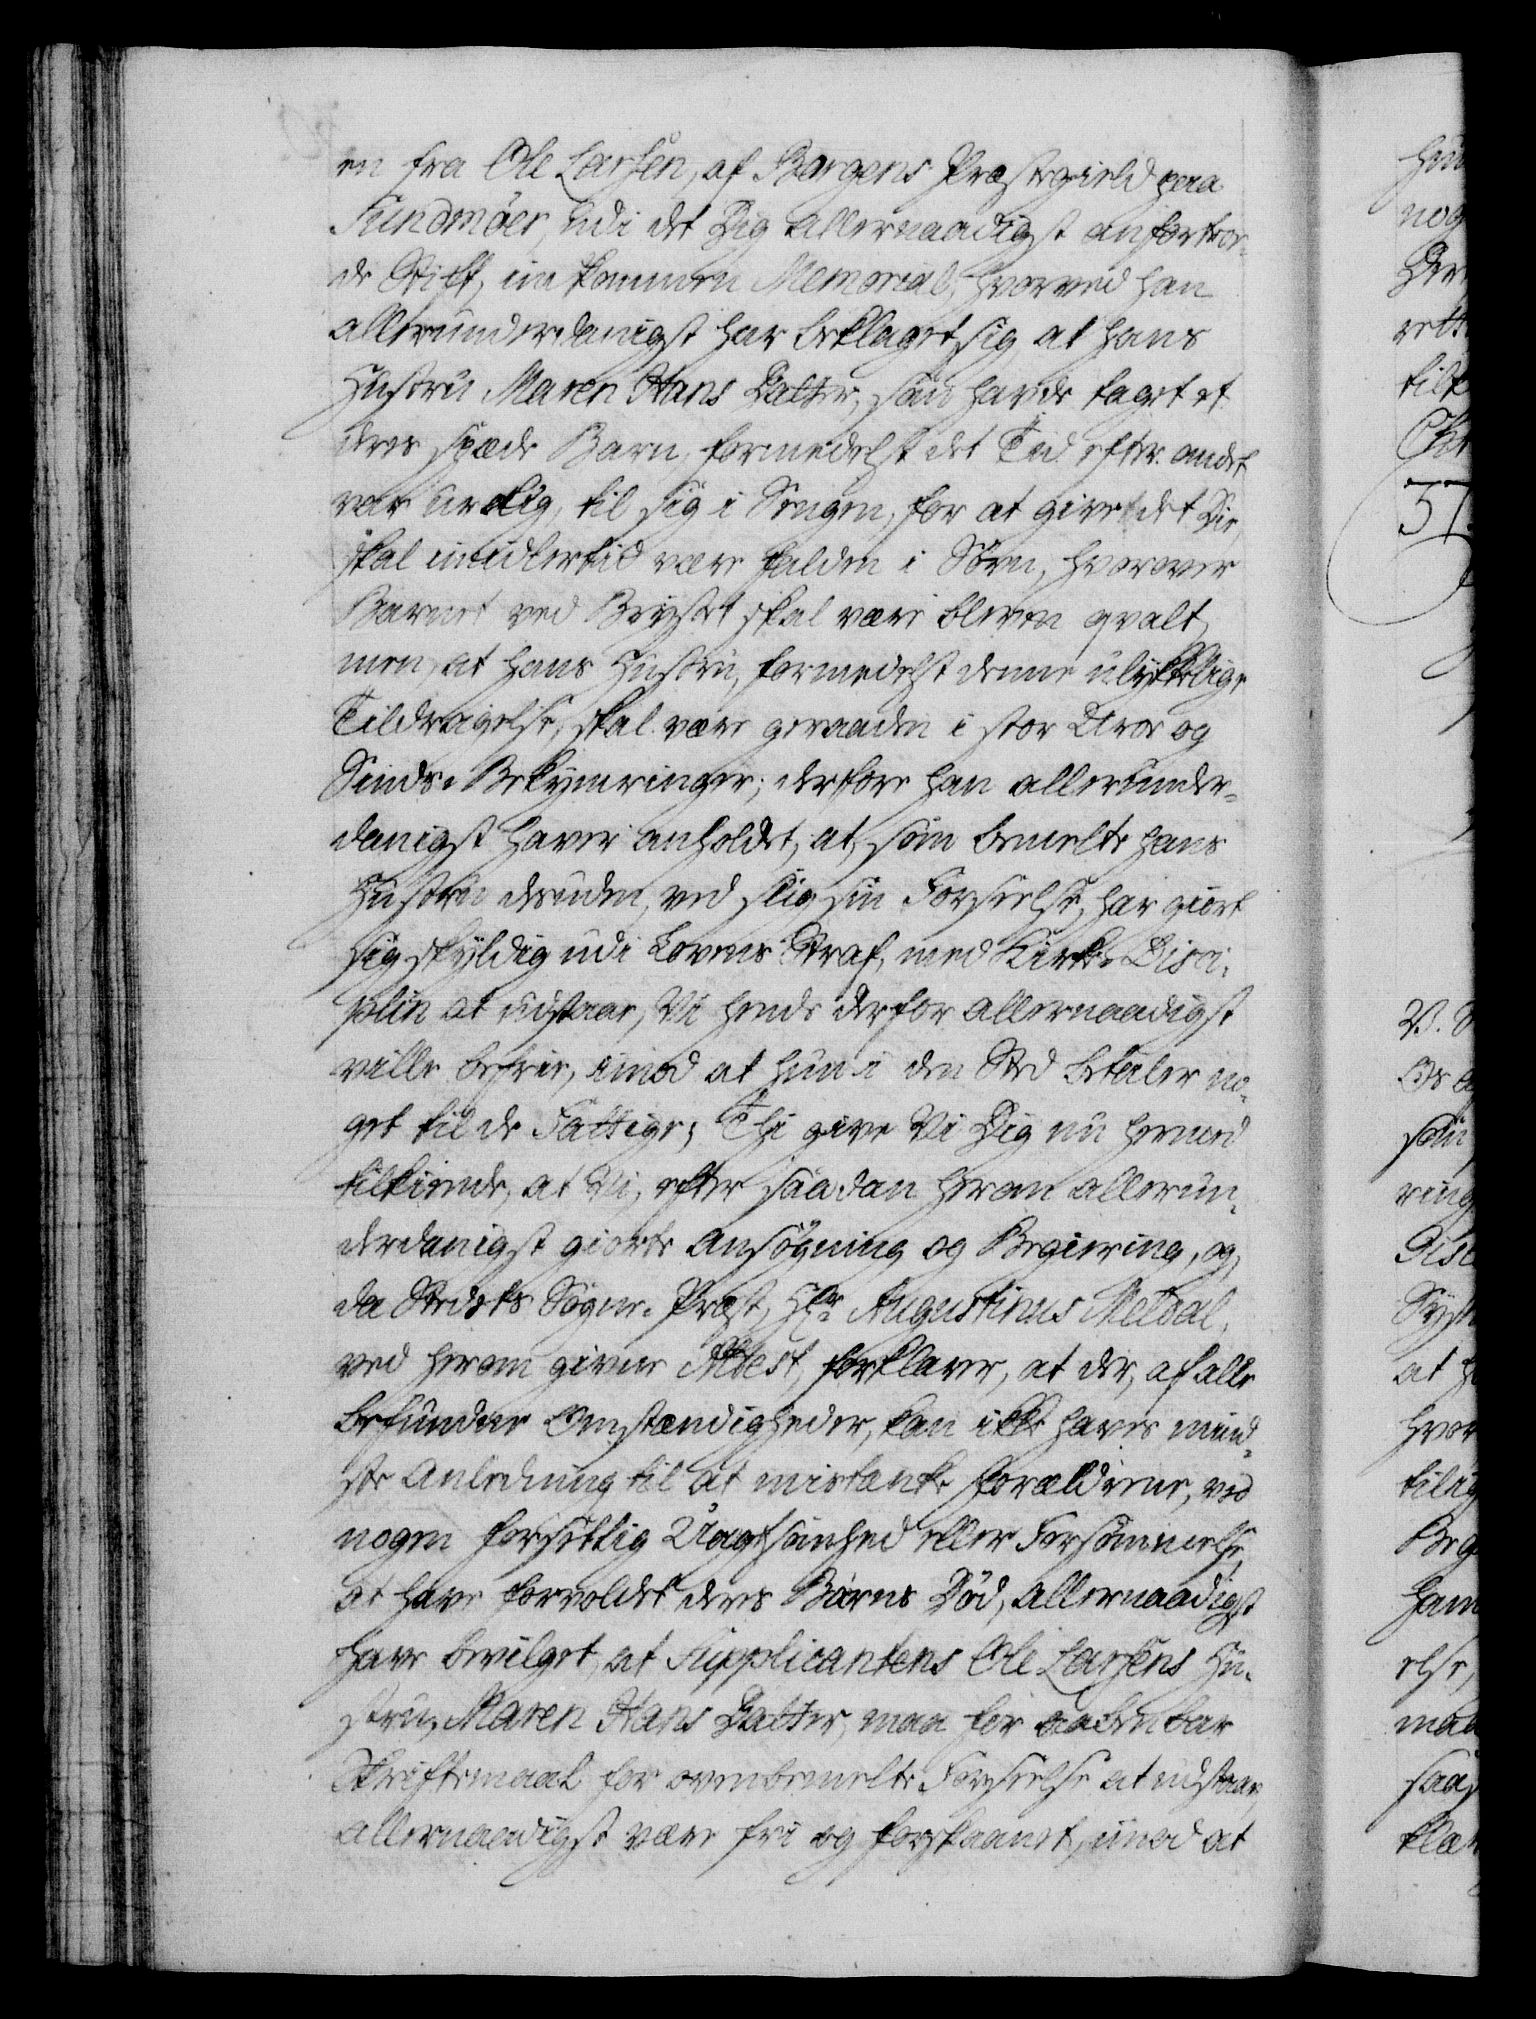 en fra Ole Larsen, af Borgens Præstegield paa
Sundmöer, udi det Dig allernaadigst anfortroe¬
de Stift, indkommen Memorial, hvorved han
allerunderdanigst har beklaget sig, at hans
Hustru Maren Hans Datter, som havde taget et
deres spæde Barn, formedelst det Tid efter andet
var urolig, til sig i Sengen, for at give det Die,
skal imidlertid være falden i Sövn, hvorover
Barnet ved Brystet skal være bleven qvalt,
men, at hans Hustru, formedelst denne ulykkelige
Tildragelse, skal være geraaden i stor Uroe og
Sinds-Bekymringer; derfore han allerunder¬
danigst haver anholdet, at, som bemelte hans
Hustru desuden, ved slig sin Forseelse, har giort
sig skyldig udi Lovens Straf, med Kirke-Disci¬
plin at udstaae, Vi hende derfor allernaadigst
ville befrie, imod at hun i den Sted betaler no¬
get til de Fattige; Thi give Vi Dig nu hermed
tilkiende, at Vi, efter saadan herom allerun¬
derdanigst giorte Ansögning og Begiering, og,
da Stedets Sogne-Præst, Hr Augustinus Meldal,
ved herom given Attest, forklarer, at der, af alle
befundne Omstændigheder, kan ikke haves mind¬
ste Anledning til at mistænke Forældrene, ved
nogen forsettlig Uagtsomhed eller Forsömmelse,
at have forvoldet deres Barns Död, allernaadigst
have bevilget, at Supplicantens Ole Larsens Hu¬
stru, Maren Hans Datter, maa for aabenbar
Skriftemaal for ovenbemelte Forseelse at udstaae,
allernaadigst være frie og forskaanet, imod at